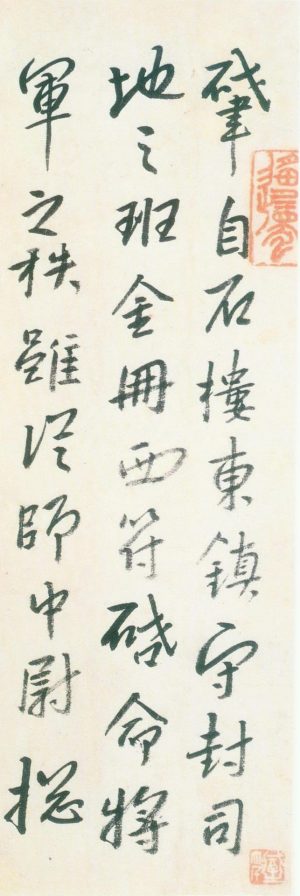 肇自石樓東鎮守封司
地之班金冊西符啓命將
軍之秩雖從師中尉揔